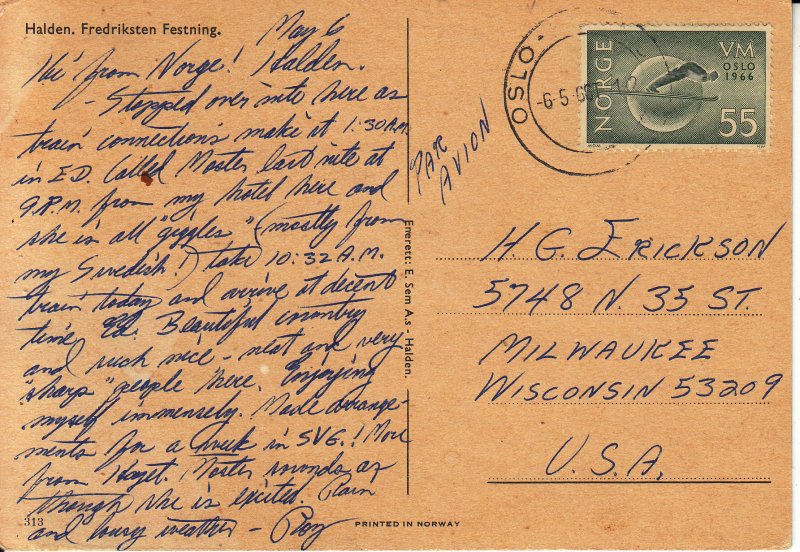 Halden. Fredriksten Festning.
May 6
Hi from Norge! Halden.
- Stopped over nite here as
train connections make it 1:30 A.M.
in ED. Called Moster last nite at
9. P.M. from my hotel here and
she is all "giggles" (mostly from
my Swedish!) take 10:32 A.M.
train today and arrive at decent
time Ed. Beautiful country
and such nice - neat and very
"sharp" people here. Enjoying
myself immensely. Made arrange-
ments for a week in SVG.! More
from Moster sounds as
though she is excited. Rain
and lousy weather - Roy
313
PAR
AVION
Enerett: E. Sem A.s - Halden.
PRINTED IN NORWAY
OSLO
-6-5.66
NORGE
VM
OSLO
1966
55
H. G. ERICKSON
5748 N. 35 ST.
MILWAUKEE
WISCONSIN 53209
U.S.A.